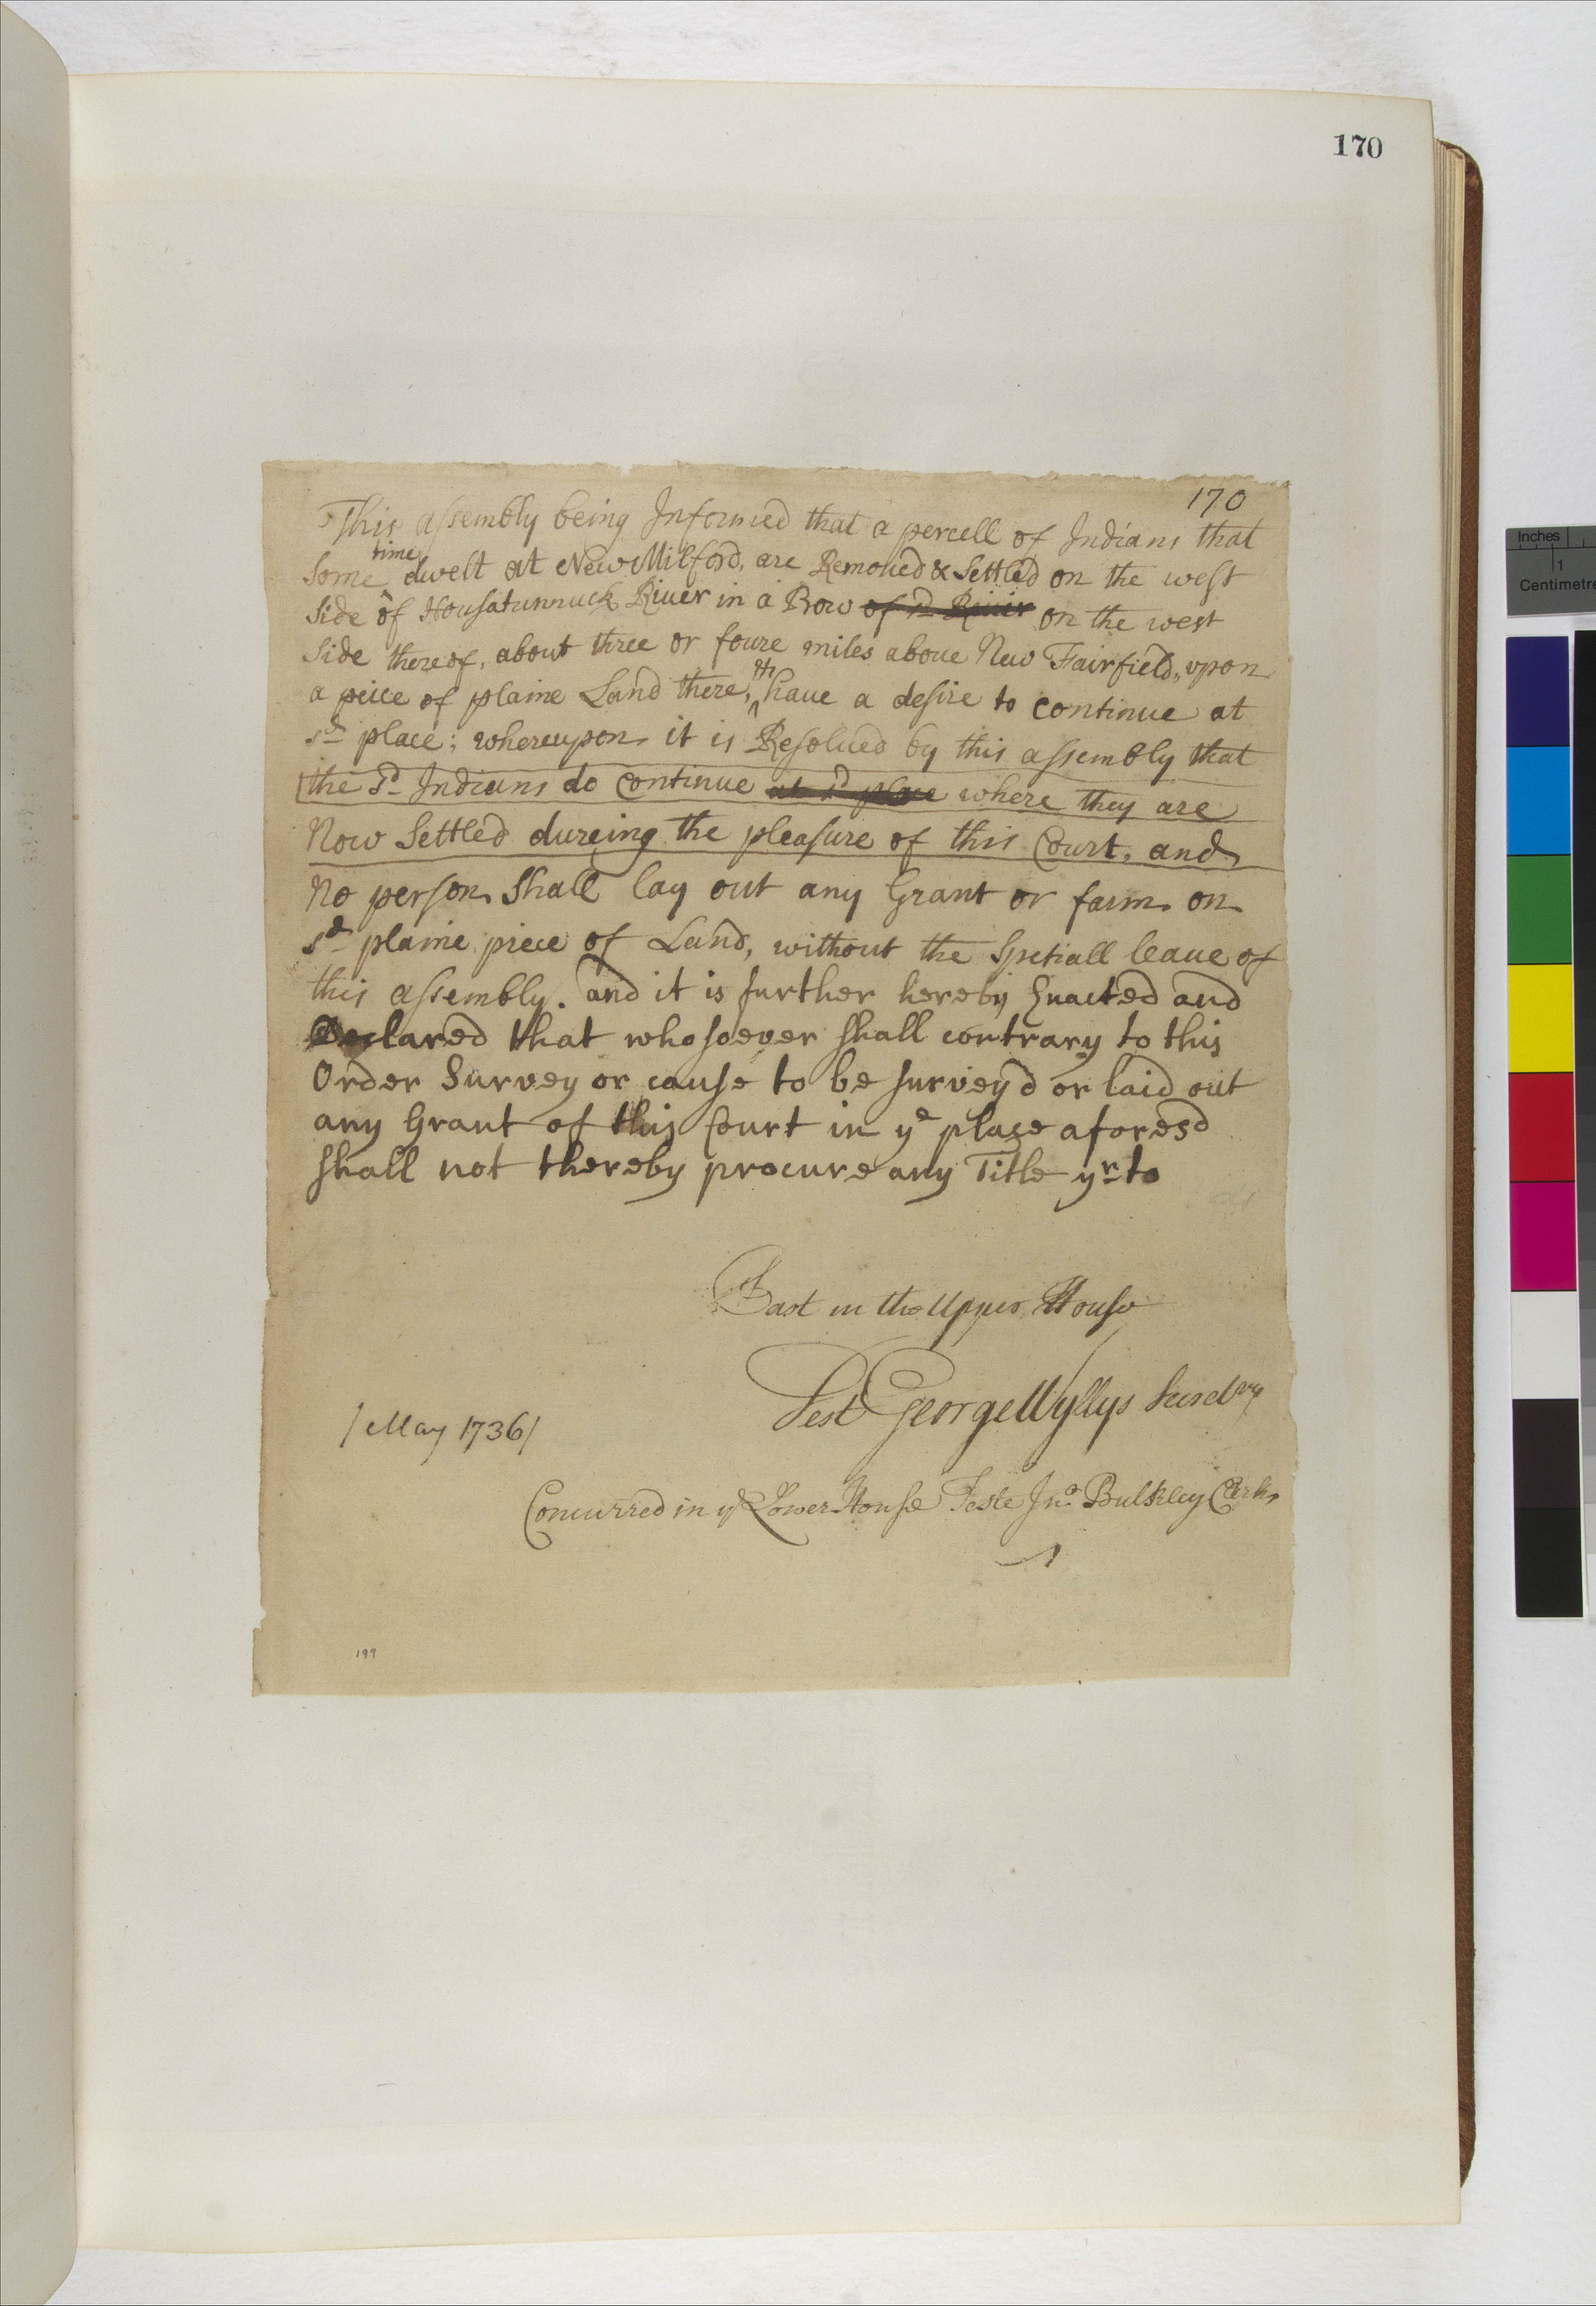 170
170
This assembly being Informed that a percell of Indians that
Some time dwelt at New Milford, are Remoued & Settled on the west
Side of Housatunnuck River in a Bow of sd River on the west
Side thereof, about three or foure miles aboue New Fairfield, vpon
a peice of plaine Land there, & haue a desire to continue at
sd place; whereupon it is Resolued by this assembly that
the sd Indians do Continue at sd place where they are
Now Settled dureing the pleasure of this Court, and
No person shall lay out any Grant or farm on
sd plaine piece of Land, without the Spetiall leaue of
this assembly. and it is further hereby Enacted and
Declared that whosoever shall contrary to this
Order Survey or cause to be survey'd or laid out
any Grant of this Court in ye place aforesd
shall not thereby procure any Title yrto
Past in the Upper House
Test George Wyllys Secretry
/May 1736/
Concurred in ye Lower House Teste Jno Bulkley Clerk
199
Inches
1
Centimetre